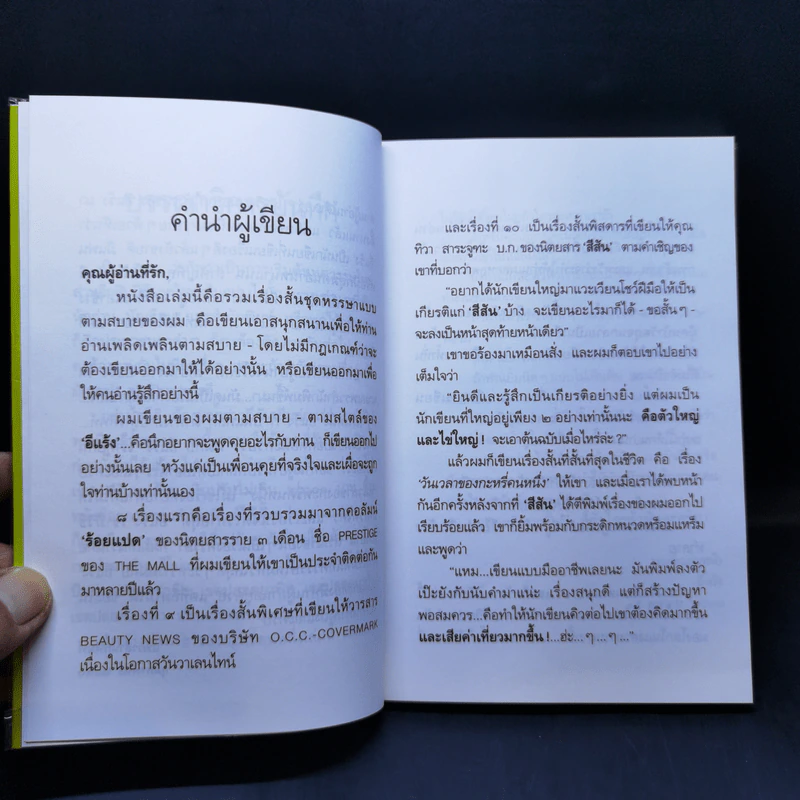 คำนำผู้เขียน
คุณผู้อ่านที่รัก,
หนังสือเล่มนี้คือรวมเรื่องสั้นชุดหรรษาแบบ
ตามสบายของผม คือเขียนเอาสนุกสนานเพื่อให้ท่าน
อ่านเพลิดเพลินตามสบาย - โดยไม่มีกฎเกณฑ์ว่าจะ
ต้องเขียนออกมาให้ได้อย่างนั้น หรือเขียนออกมาเพื่อ
ให้คนอ่านรู้สึกอย่างนี้
ผมเขียนของผมตามสบาย - ตามสไตล์ของ
'อีแร้ง'...คือนึกอยากจะพูดคุยอะไรกับท่าน ก็เขียนออกไป
อย่างนั้นเลย หวังแค่เป็นเพื่อนคุยที่จริงใจและเผื่อจะถูก
ใจท่านบ้างเท่านั้นเอง
๘ เรื่องแรกคือเรื่องที่รวบรวมมาจากคอลัมน์
'ร้อยแปด' ของนิตยสารราย ๓ เดือน ชื่อ PRESTIGE
ของ THE MALL ที่ผมเขียนให้เขาเป็นประจำติดต่อกัน
มาหลายปีแล้ว
เรื่องที่ ๙ เป็นเรื่องสั้นพิเศษที่เขียนให้วารสาร
BEAUTY NEWS ของบริษัท O.C.C.-COVERMARK
เนื่องในโอกาสวันวาเลนไทน์
และเรื่องที่ ๑๐ เป็นเรื่องสั้นพิสดารที่เขียนให้คุณ
ทิวา สาระจูฑะ บ.ก. ของนิตยสาร 'สีสัน' ตามคำเชิญของ
เขาที่บอกว่า
"อยากได้นักเขียนใหญ่มาแวะเวียนโชว์ฝีมือให้เป็น
เกียรติแก่ 'สีสัน' บ้าง จะเขียนอะไรมาก็ได้ - ขอสั้น ๆ -
จะลงเป็นหน้าสุดท้ายหน้าเดียว"
เขาขอร้องมาเหมือนสั่ง และผมก็ตอบเขาไปอย่าง
เต็มใจว่า
"ยินดีและรู้สึกเป็นเกียรติอย่างยิ่ง แต่ผมเป็น
นักเขียนที่ใหญ่อยู่เพียง ๒ อย่างเท่านั้นนะ คือตัวใหญ่
และไข่ใหญ่ ! จะเอาต้นฉบับเมื่อไหร่ล่ะ ?"
แล้วผมก็เขียนเรื่องสั้นที่สั้นที่สุดในชีวิต คือ เรื่อง
'วันเวลาของกะหรี่คนหนึ่ง' ให้เขา และเมื่อเราได้พบหน้า
กันอีกครั้งหลังจากที่ 'สีสัน' ได้ตีพิมพ์เรื่องของผมออกไป
เรียบร้อยแล้ว เขาก็ยิ้มพร้อมกับกระดิกหนวดหร็อมแหร็ม
และพูดว่า
"แหม...เขียนแบบมืออาชีพเลยนะ มันพิมพ์ลงตัว
เป๊ะยังกับนับคำมาแน่ะ เรื่องสนุกดี แต่ก็สร้างปัญหา
พอสมควร...คือทำให้นักเขียนคิวต่อไปเขาต้องคิดมากขึ้น
และเสียค่าเที่ยวมากขึ้น !...ฮ่ะ...ๆ...ๆ..."